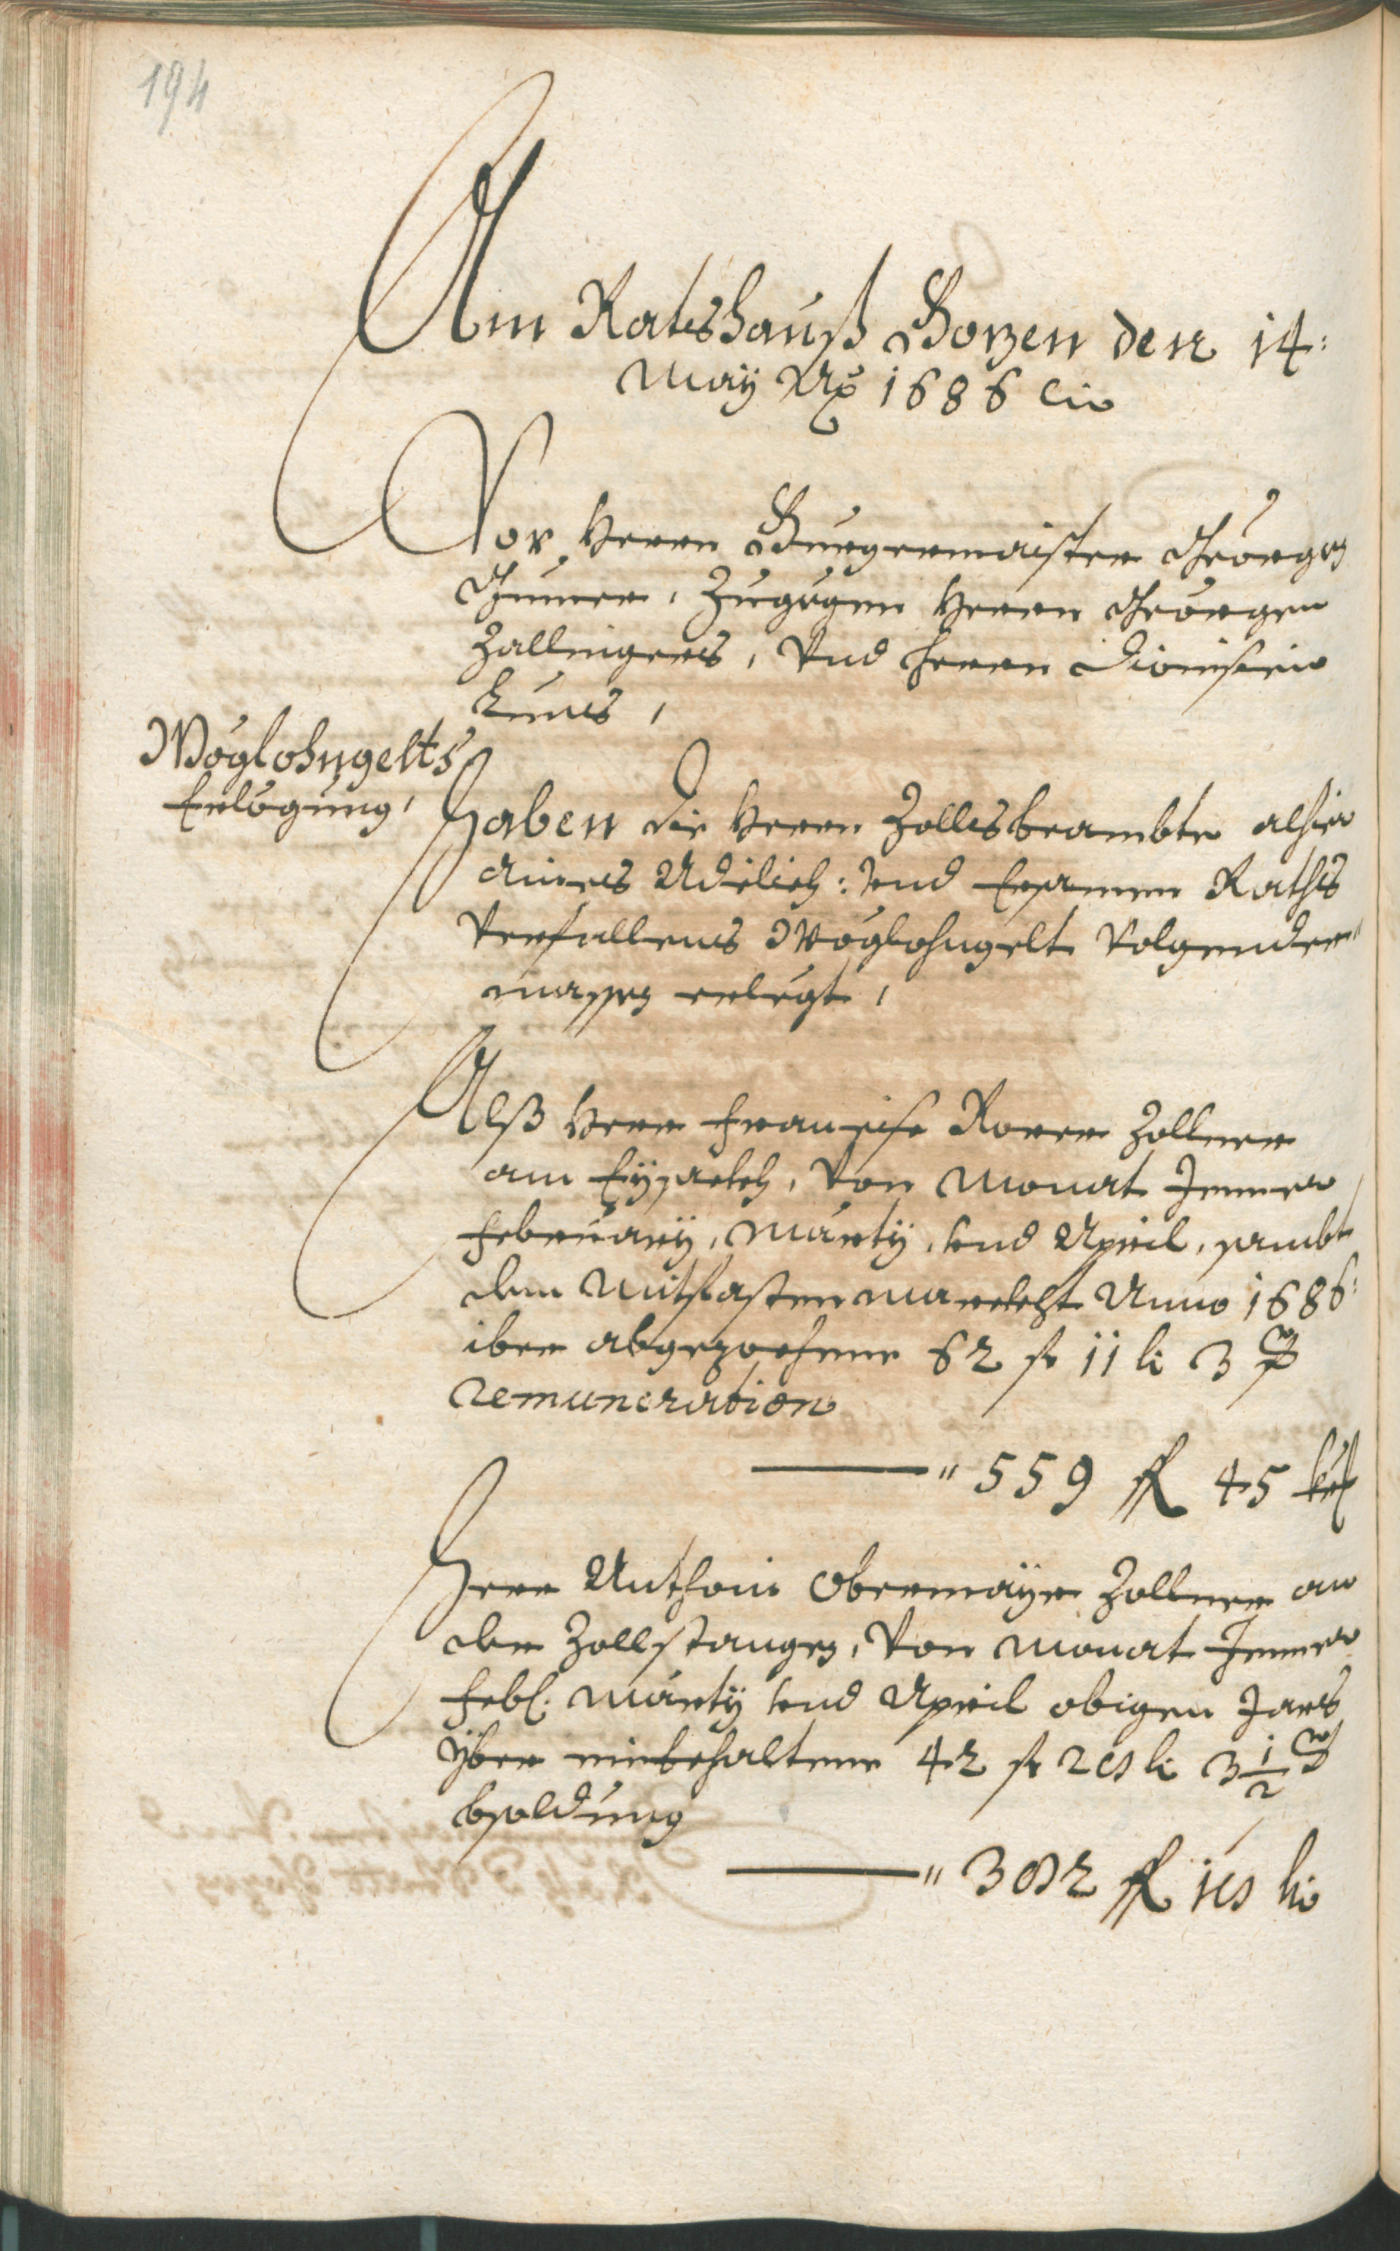 194
Am Ratshauß Bozen den 14:
May Ao 1686 etc
Vor Herrn Burgermaister Geörgen
Gumer, Zugegen Herrn Geörgen
Zallingers, Vnd Herrn Dionisien
Kuns,
Wöglohngelts
Erlögung,
Haben die Herrn Zollsbeambte alhier
aines Adelich: vnd Ersamen Raths
Verfallenes Wöglohngelt Volgender
massen erlegt,
Alß Herr Francisc Rorer Zollner
am Eysackh, Von Monat Jenner
Februarÿ, Martÿ, vnd April, sambt
dem Mitfastenmarckht Anno 1686:
iber abgezochene 62 fl 11 k 3
remuneration
" 559 fl 45 kr
Herr Anthoni Obermayr Zollner an
der Zollstangen, Von Monat Jenner
Feb: Martÿ vnd April obigen Jars
yber einbehaltene 42 fl 20 k 3 1/2
bsoldung
" 302 fl 10 k